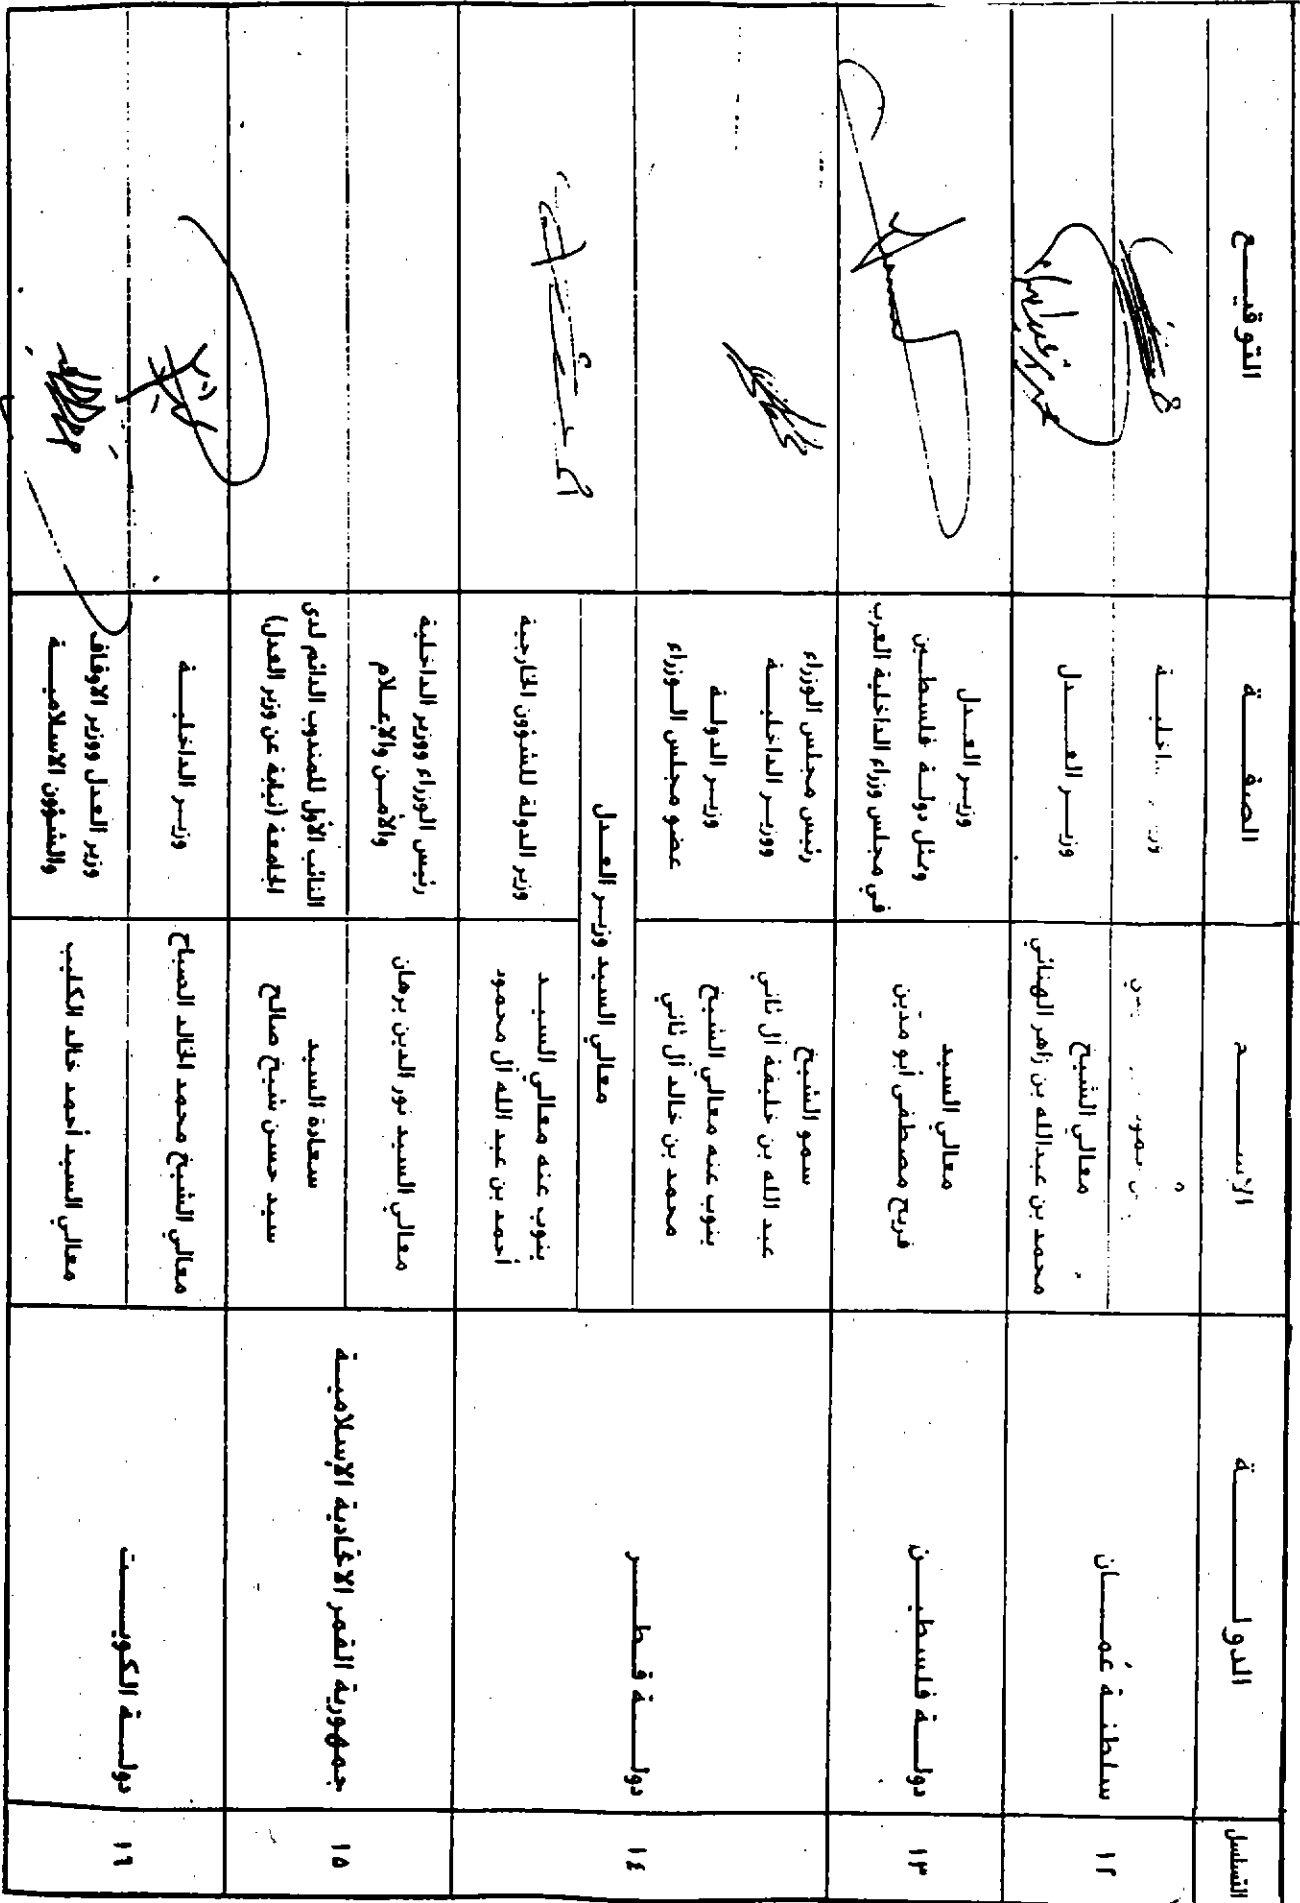 التسلسل
الدولــــــة
الإســــم
الصفــــة
التوقيــــع
١٢
سلطنـة عُمــان
معالي الشيخ
محمد بن عبدالله بن زاهر الهنائي
وزيــر العــــدل
١٣
دولــة فلسطيــن
معالي السيد
فريح مصطفى أبو مدين
وزيـر العــدل
وممثل دولـة فلسطـين
في مجلس وزراء الداخلية العرب
١٤
دولـــة قـطـــر
سمو الشيخ
عبد الله بن خليفة آل ثاني
ينوب عنه معالي الشيخ
محمد بن خالد آل ثاني
رئيس مجلس الوزراء
ووزيـر الداخليــة
وزيـر الدولـة
عضو مجلس الـوزراء
معالي السيد وزيـر العـدل
ينوب عنه معالي السيـد
أحمد بن عبد الله آل محمود
وزير الدولة للشؤون الخارجية
١٥
جمهورية القمر الاتحادية الإسلاميـة
معالي السيد نور الدين برهان
رئيس الوزراء ووزير الداخلية
والأمـن والإعـلام
سعادة السيد
سيد حسن شيخ صالح
النائب الأول للمندوب الدائم لدى
الجامعة (نيابة عن وزير العدل)
١٦
دولــة الكويــت
معالي الشيخ محمد الخالد الصباح
وزيـر الداخليـــة
معالي السيد أحمد خالد الكليب
وزير العدل ووزير الاوقاف
والشؤون الاسلاميـــة